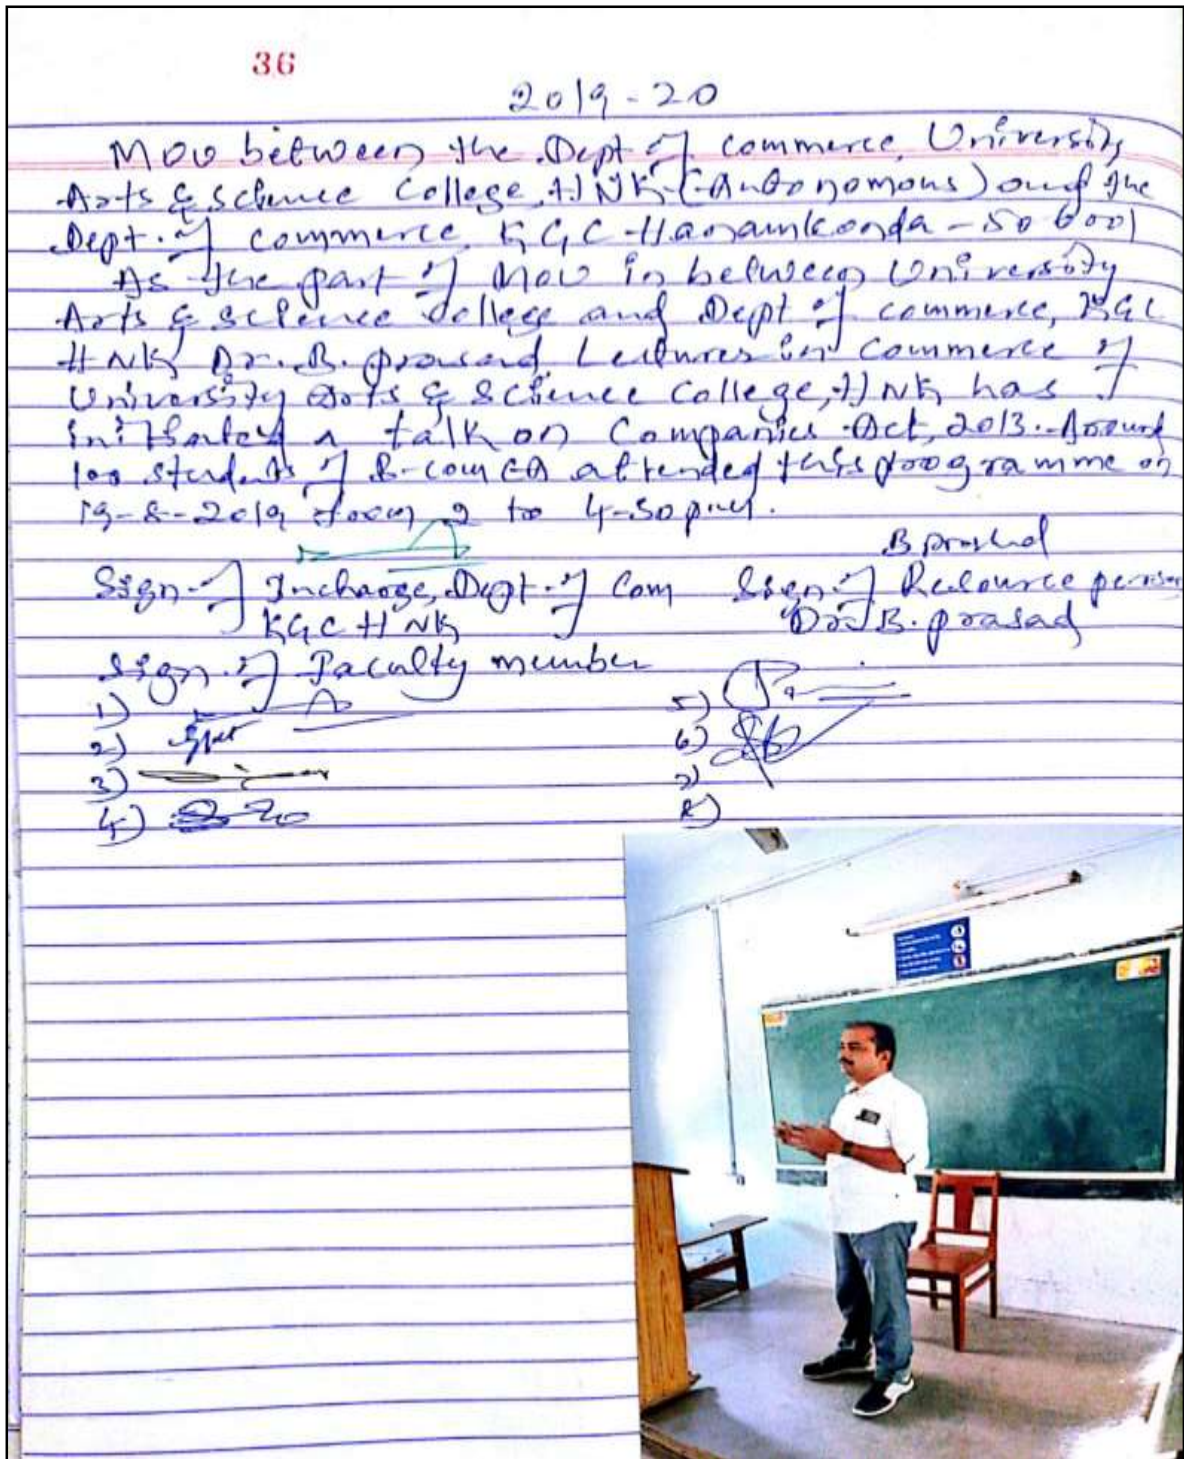 36
2019-20
MOU between the Dept of commerce, University
Arts & Science College, HNK (Autonomous) and the
Dept. of commerce, KGC Hanamkonda - 506001
As the part of MOU in between University
Arts & Science College and Dept of commerce, KGC
HNK, Dr. B. prasad, Lectures in Commerce of
University Arts & Science College, HNK has
a talk on Companies Act, 2013. Around
100 students of B-com CA attended this programme on
19-8-2019 from 2 to 4-30 pm.
B prashad
Sign of Incharge, Dept. of Com Sign of Resource person
KGC HNK Dr. B. prasad
Sign. of Faculty member
1) 5)
2) 6)
3) 7)
4) 8)